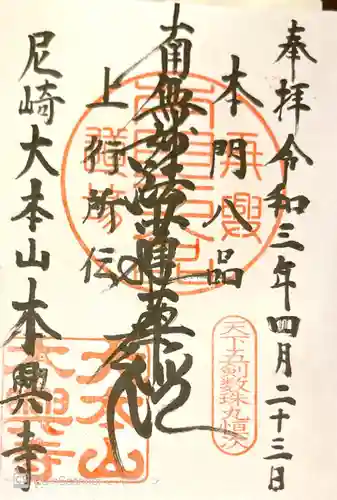 奉拝 令和三年四月二十三日
本門八品
南無妙法蓮華経
上行所伝
尼崎 大本山 本興寺
天下五剣数珠丸恒次
大本山
本興寺